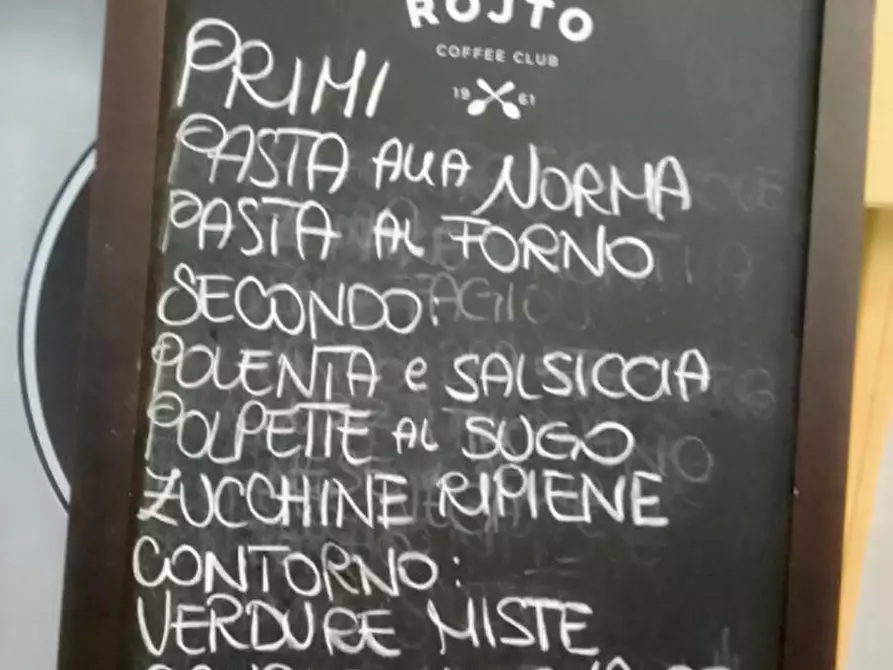 ROJTO
COFFEE CLUB
19 61
PRIMI
PASTA ALLA NORMA
PASTA AL FORNO
SECONDO:
POLENTA e SALSICCIA
POLPETTE AL SUGO
ZUCCHINE RIPIENE
CONTORNO:
VERDURE MISTE